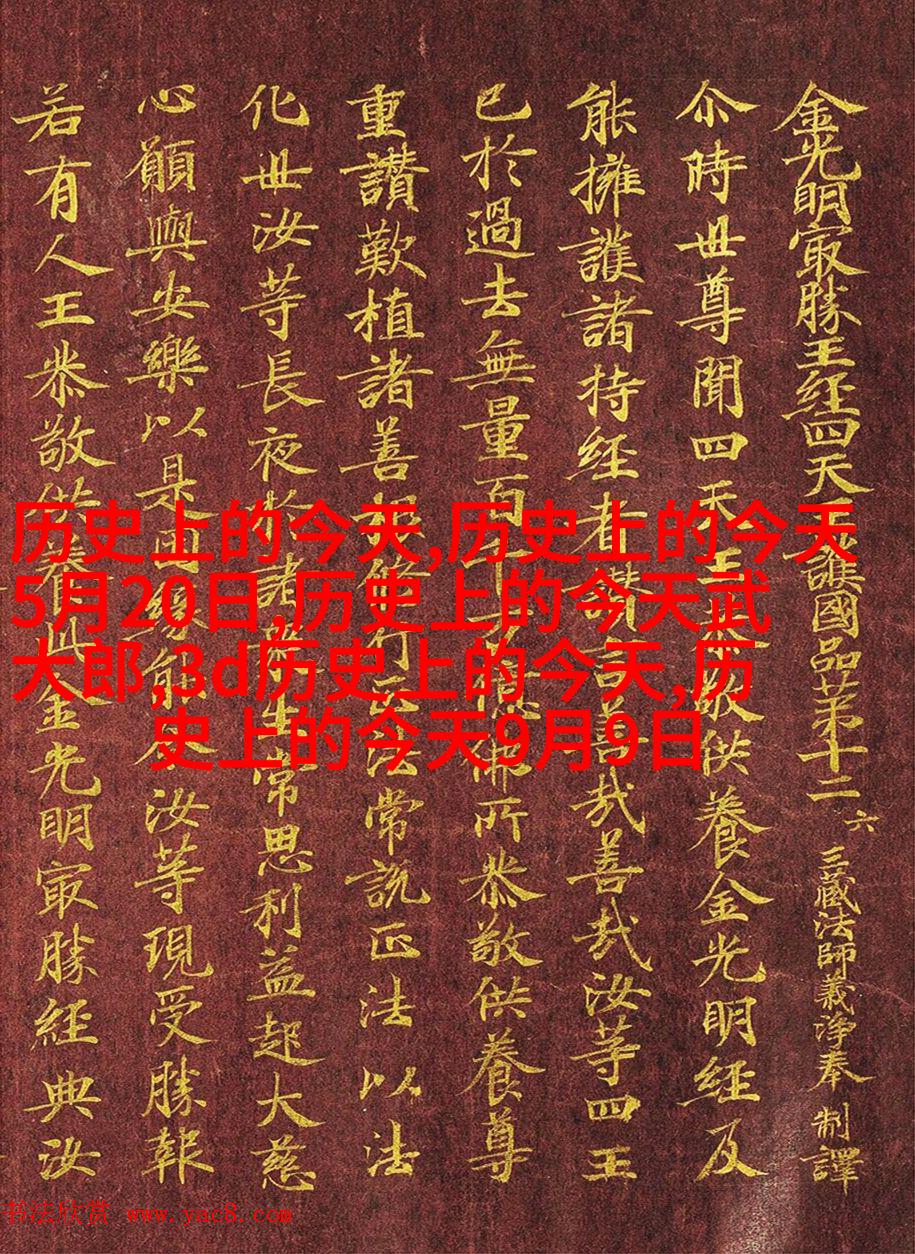 金光明冣勝王经四天王護國品苐十二 六 三藏法師義淨奉 制譯
尒時世尊聞四天王恭敬供養金光明經及
能擁護諸持经者讃言善㢤善㢤汝等四王
已於過去無量百千佛所恭敬供養尊
重讃歎植諸善根修行正法常說正法以法
化世汝等長夜於諸生常思利益起大慈
心願與安樂以是因緣能令汝等現受勝報
若有人王恭敬供養此金光明冣勝經典汝
历史上的今天,历史上的今天
5月20日,历史上的今天武
大郎,3d历史上的今天,历
史上的今天9月9日
书法欣赏 www.yac8.com